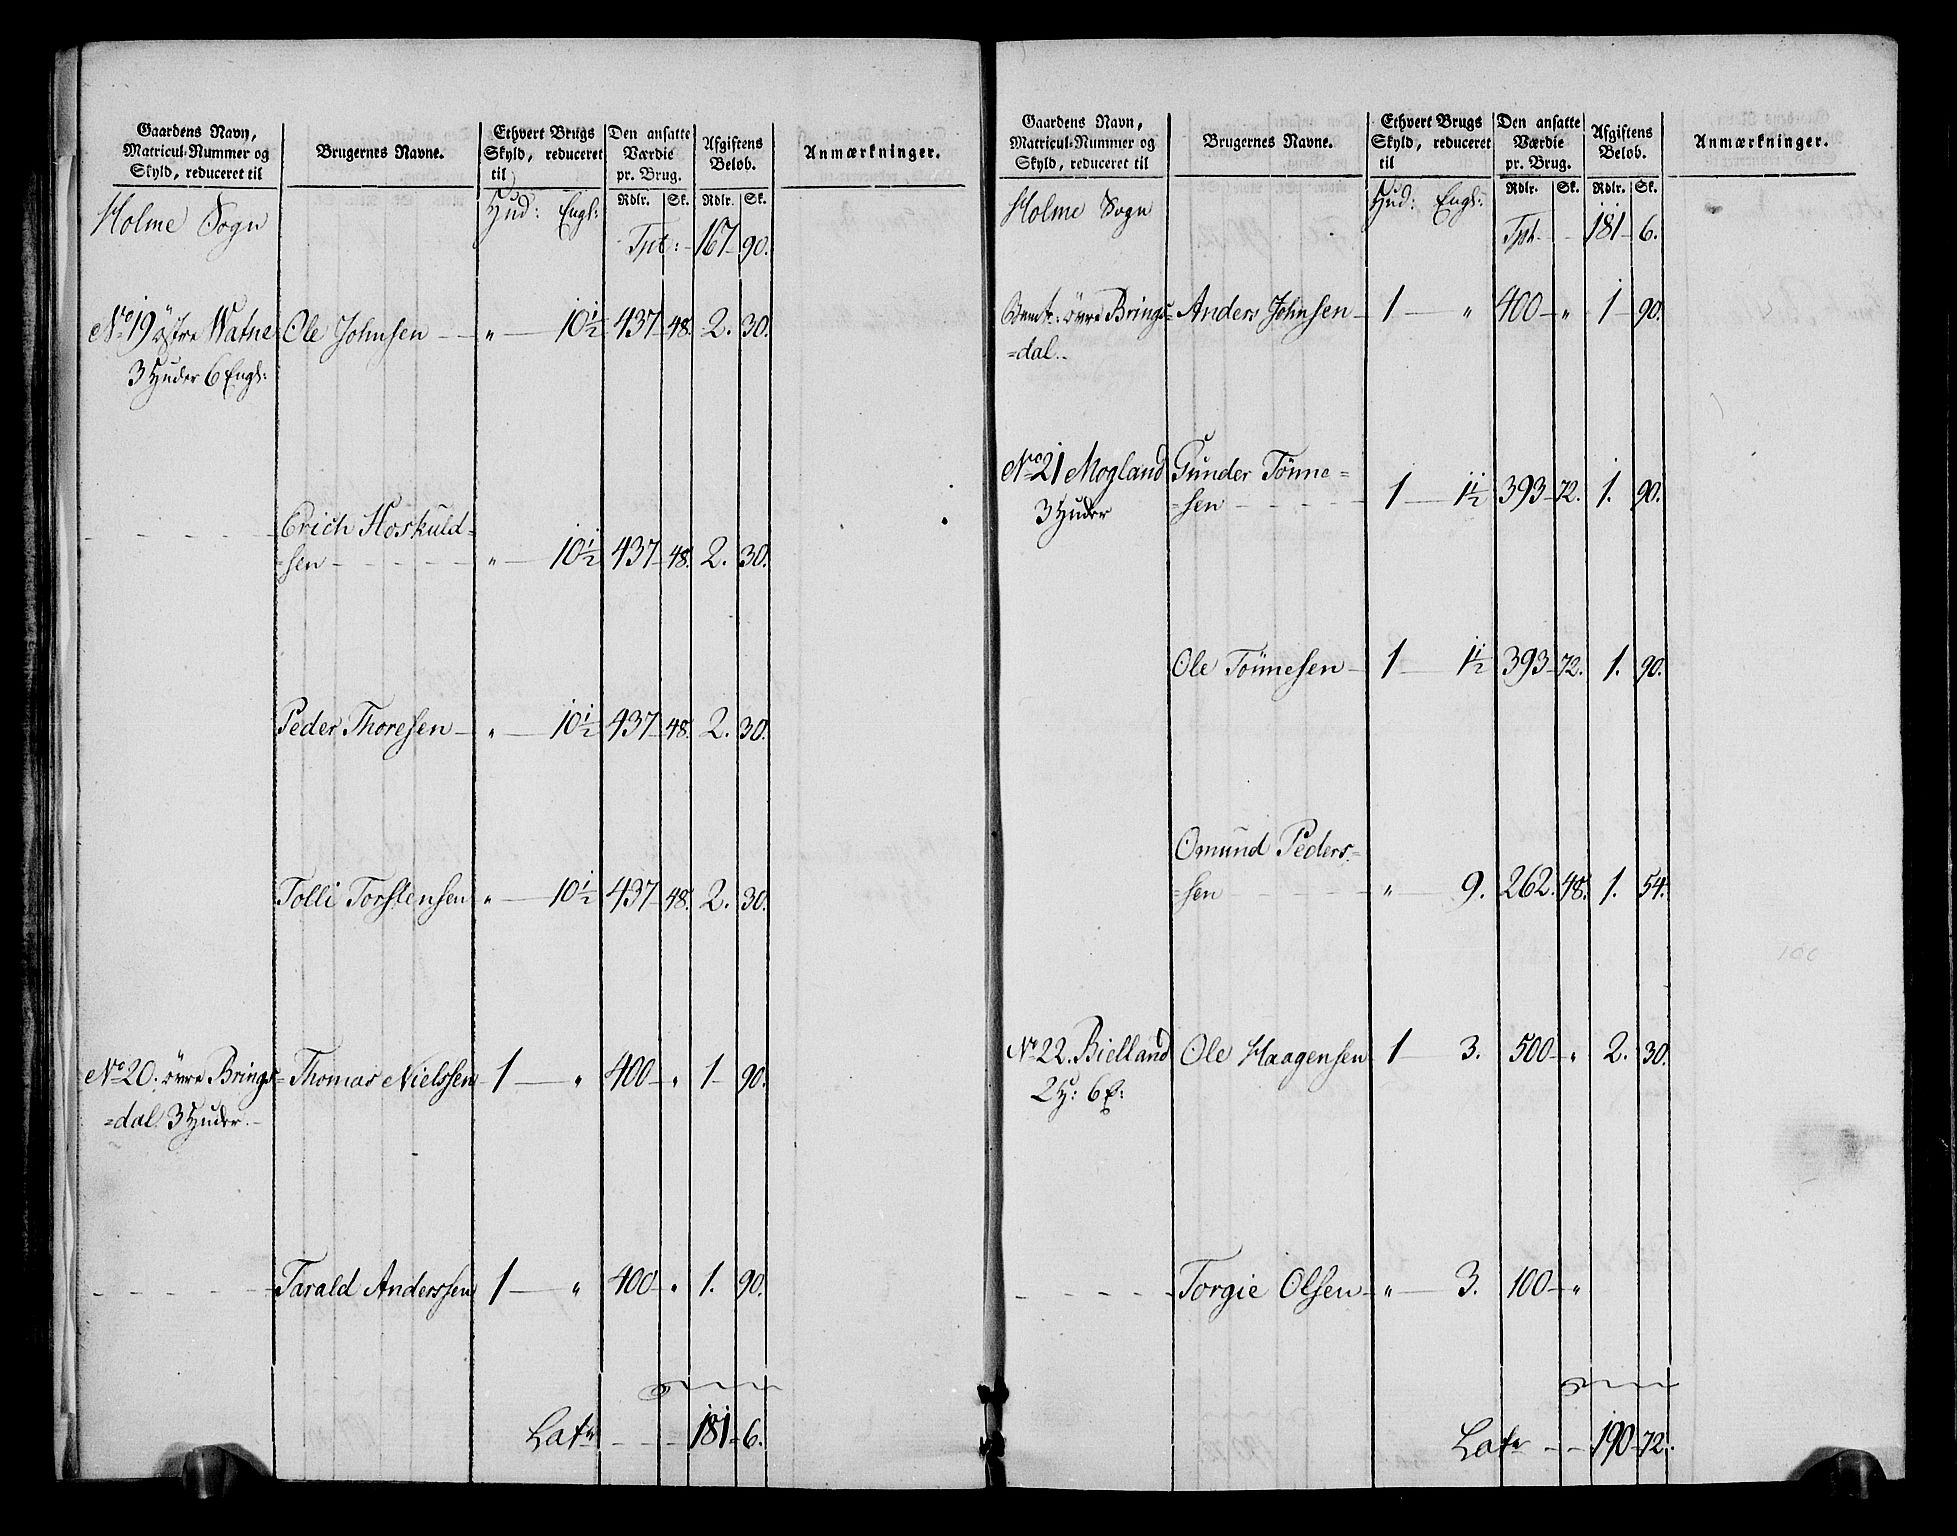 Gaardens Navn, Matricul-Nummer og Skyld, reduceret til | Brugernes Navne. | Ethvert Brugs Skyld, reduceret til | Den ansatte Værdie pr. Brug. | Afgiftens Beløb. | Anmærkninger.
Rdlr. Sk. Rdlr. Sk.
Holme Sogn Hud: Engl: Tpt: 167 90.
No 19 östre Watne Ole Johnsen " 10½ 437 48. 2. 30.
3 Huder 6 Engl:
Erich Hoskuld-
=sen " 10½ 437 48. 2. 30.
Peder Thoresen " 10½ 437 48. 2. 30.
Tolli Torstensen " 10½ 437 48. 2. 30.
No 20. övre Brings- Thomas Nielssen 1 " 400 " 1 90.
=dal. 3 Huder.
Tarald Anderssen 1 " 400 " 1. 90.
Latr 181 6.
Gaardens Navn, Matricul-Nummer og Skyld, reduceret til | Brugernes Navne. | Ethvert Brugs Skyld, reduceret til | Den ansatte Værdie pr. Brug. | Afgiftens Beløb. | Anmærkninger.
Rdlr. Sk. Rdlr. Sk.
Holme Sogn Hud: Engl: Tpt 181 6.
övre Brings= Anders Johnsen 1 " 400 " 1 90.
=dal.
No 21 Mogland Gunder Tönne=
3 Huder =sen 1 1½ 393 72. 1. 90.
Ole Tönnesen 1 1½ 393 72. 1. 90.
Omund Peders=
=sen " 9. 262. 48. 1. 54.
No 22. Bielland Ole Haagensen 1 3. 500 " 2. 30.
2 H: 6 E:
Torgie Olsen " 3. 100 "
Latr 190 72.